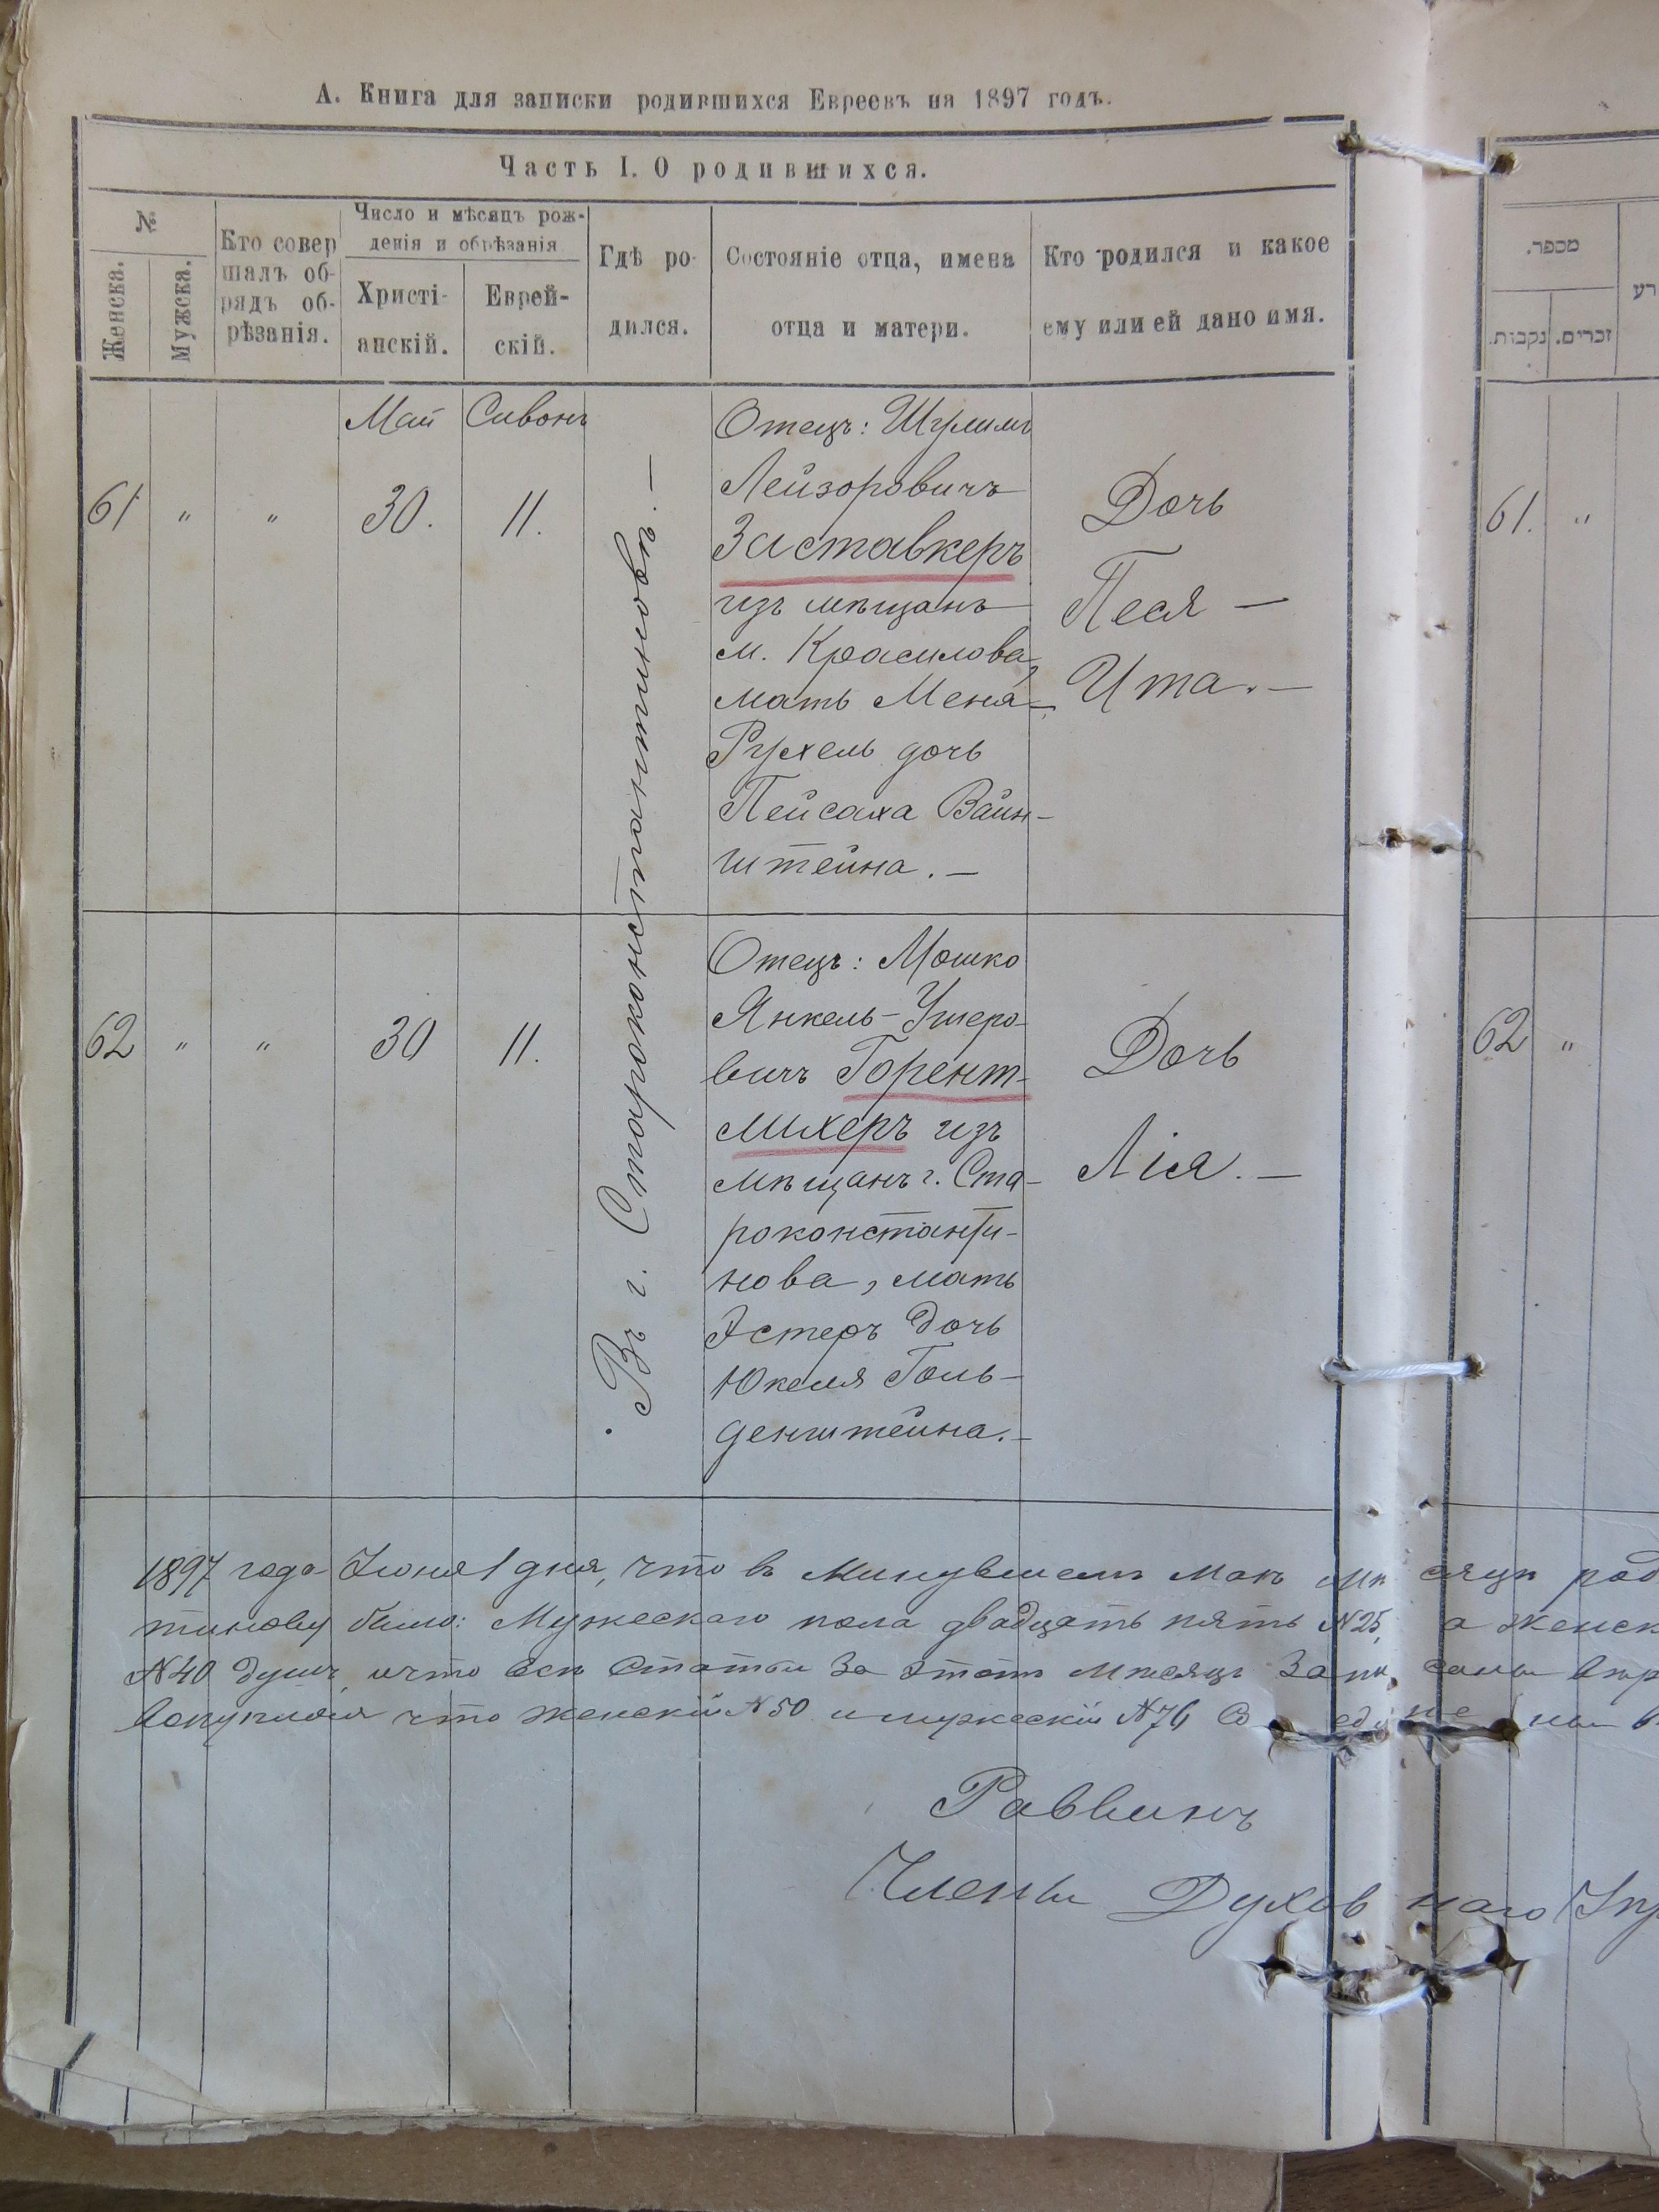 А. Книга для записки родившихся Евреевъ на 1897 годъ.
Часть I. О родившихся.
№
Женска.
Мужска.
Кто совер
шалъ об-
рядъ об-
рѣзанія.
Число и мѣсяцъ рож-
денія и обрѣзанія
Христі-
анскій.
Еврей-
скій.
Гдѣ ро-
дился.
Состояніе отца, имена
отца и матери.
Кто родился и какое
ему или ей дано имя.
מספר.
נקבות.
זכרים.
Май
Сивонъ
61
"
"
30.
11.
Въ г. Староконстантиновѣ. —
Отецъ: Шулимъ
Лейзоровичъ
Заставкеръ
изъ мѣщанъ
м. Красилова,
мать Меня-
Рухель дочь
Пейсаха Вайн-
штейна. —
Дочь
Песя —
Ита. —
61.
"
62
"
"
30
11.
Отецъ: Мошко
Янкель-Ушеро-
вичъ Горент-
лихеръ изъ
мѣщанъ г. Ста-
роконстанти-
нова, мать
Эстеръ дочь
Юкеля Голь-
денштейна. —
Дочь
Лія. —
62
"
1897 года Іюня 1 дня, что въ минувшемъ Маѣ мѣсяцѣ род
тинову было: Мужескаго пола двадцать пять №25, а женск
№40 душъ, и что всѣ статьи за этотъ мѣсяцъ записаны
что женскій №50 и мужескій №76
Раввинъ
Члены Духовнаго